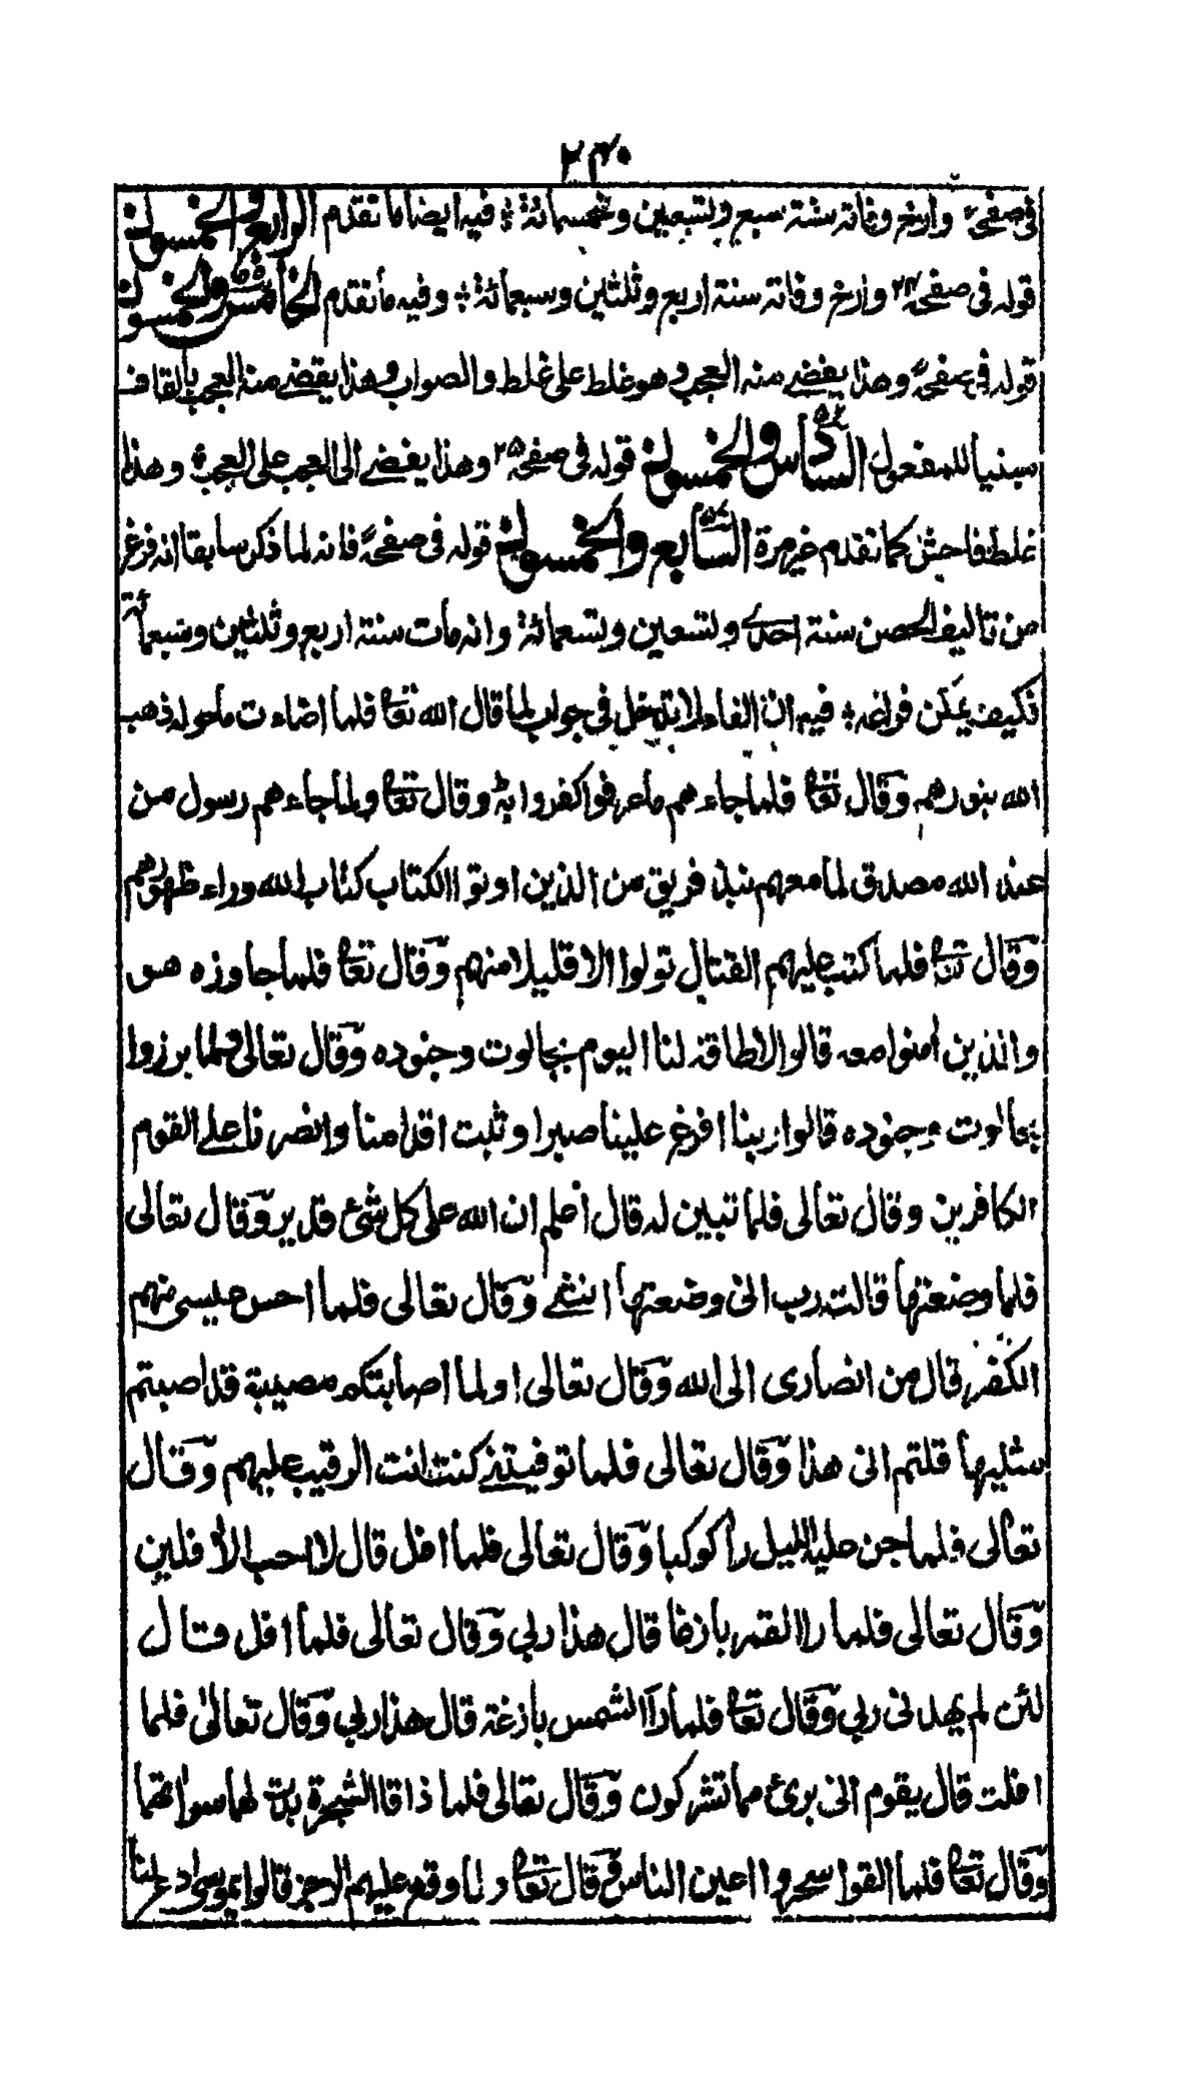 ٢٤٠
فى صفحة وارخ وفاته سنة سبع وتسعين وخمسمائة فيه ايضا ما تقدم الرابع والخمسون
قوله فى صفحة ٢٤ وارخ وفاته سنة اربع وثلثين وسبعمائة وفيه ما تقدم الخامس والخمسون
قوله فى صفحة وهذا يفضے منه العجب وهو غلط على غلط والصواب وهذا يقضے منه العجب بالقاف
مبنيا للمفعول السادس والخمسون قوله فى صفحة ٢٥ وهذا يفضے الى العجب على العجب وهذا
غلط فاحش كما تقدم غير مرة السابع والخمسون قوله فى صفحة فانه لما ذكر سابقا انه فرغ
من تاليف الحصن سنة احدے وتسعين وتسعمائة وانه مات سنة اربع وثلثين وسبعمأئة
فكيف يمكن فراغه فيه ان الفاء لا تدخل فى جواب لما قال الله تعا فلما اضاءت ما حوله ذهب
الله بنورهم وقال تعا فلما جاءهم ما عرفوا كفروا به وقال تعا ولما جاءهم رسول من
عند الله مصدق لما معهم نبذ فريق من الذين اوتوا الكتاب كتاب الله وراء ظهورهم
وقال تعا فلما كتب عليهم القتال تولوا الا قليلا منهم وقال تعا فلما جاوزه هو
والذين أمنوا معه قالوا لا طاقة لنا اليوم بجالوت وجنوده وقال تعالى ولما برزوا
بجالوت وجنوده قالوا ربنا افرغ علينا صبرا وثبت اقدامنا وانصرنا على القوم
الكافرين وقال تعالى فلما تبين له قال أعلم ان الله على كل شئ قدير وقال تعالى
فلما وضعتها قالت رب انى وضعتها انثے وقال تعالى فلما احس عيسى منهم
الكفر قال من انصارى الى الله وقال تعالى او لما اصابتكم مصيبة قد اصبتم
مثليها قلتم انى هذا وقال تعالى فلما توفيتنے كنت انت الرقيب عليهم وقال
تعالى فلما جن عليه الليل رأ كوكبا وقال تعالى فلما افل قال لا احب الأفلين
وقال تعالى فلما را القمر بازغا قال هذا ربي وقال تعالى فلما افل قال
لئن لم يهدنى ربي وقال تعا فلما رأ الشمس بازغة قال هذا ربي وقال تعالى فلما
افلت قال يقوم انى برئ مما تشركون وقال تعالى فلما ذاقا الشجرة بدت لهما سواتهما
وقال تعا فلما القوا سحروا اعين الناس وقال تعا ولما وقع عليهم الرجز قالوا يموسى ادع لنا